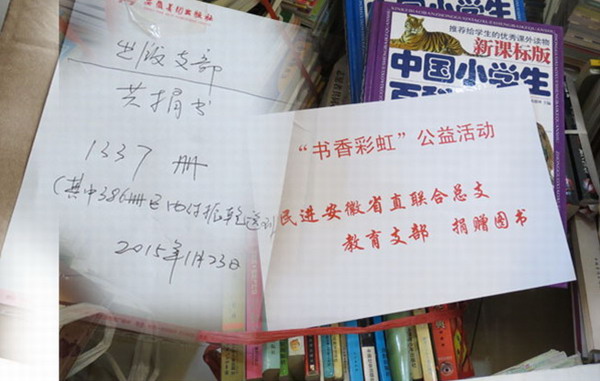 安徽美术出版社
出版支部
共捐书
1337册
(其中386册已由付振乾送到)
2015年11月23日
推荐给学生的优秀课外读物
新课标版
中国小学生
百科
“书香彩虹”公益活动
民进安徽省直联合总支
教育支部 捐赠图书